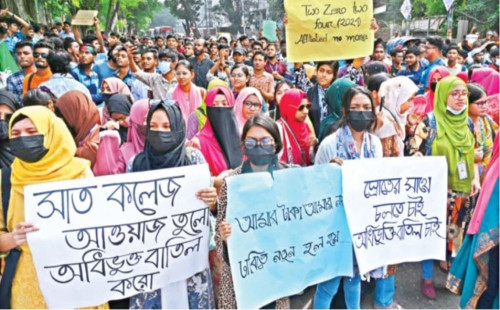 Two Zero two
four (2024)
Affiliated no more
সাত কলেজ
আওয়াজ তুলো
অধিভুক্ত বাতিল
করো
আমার টাকা আমার
হল
স্রোতের সাথে
চলতে চাই
অধিভুক্তি বাতিল চাই